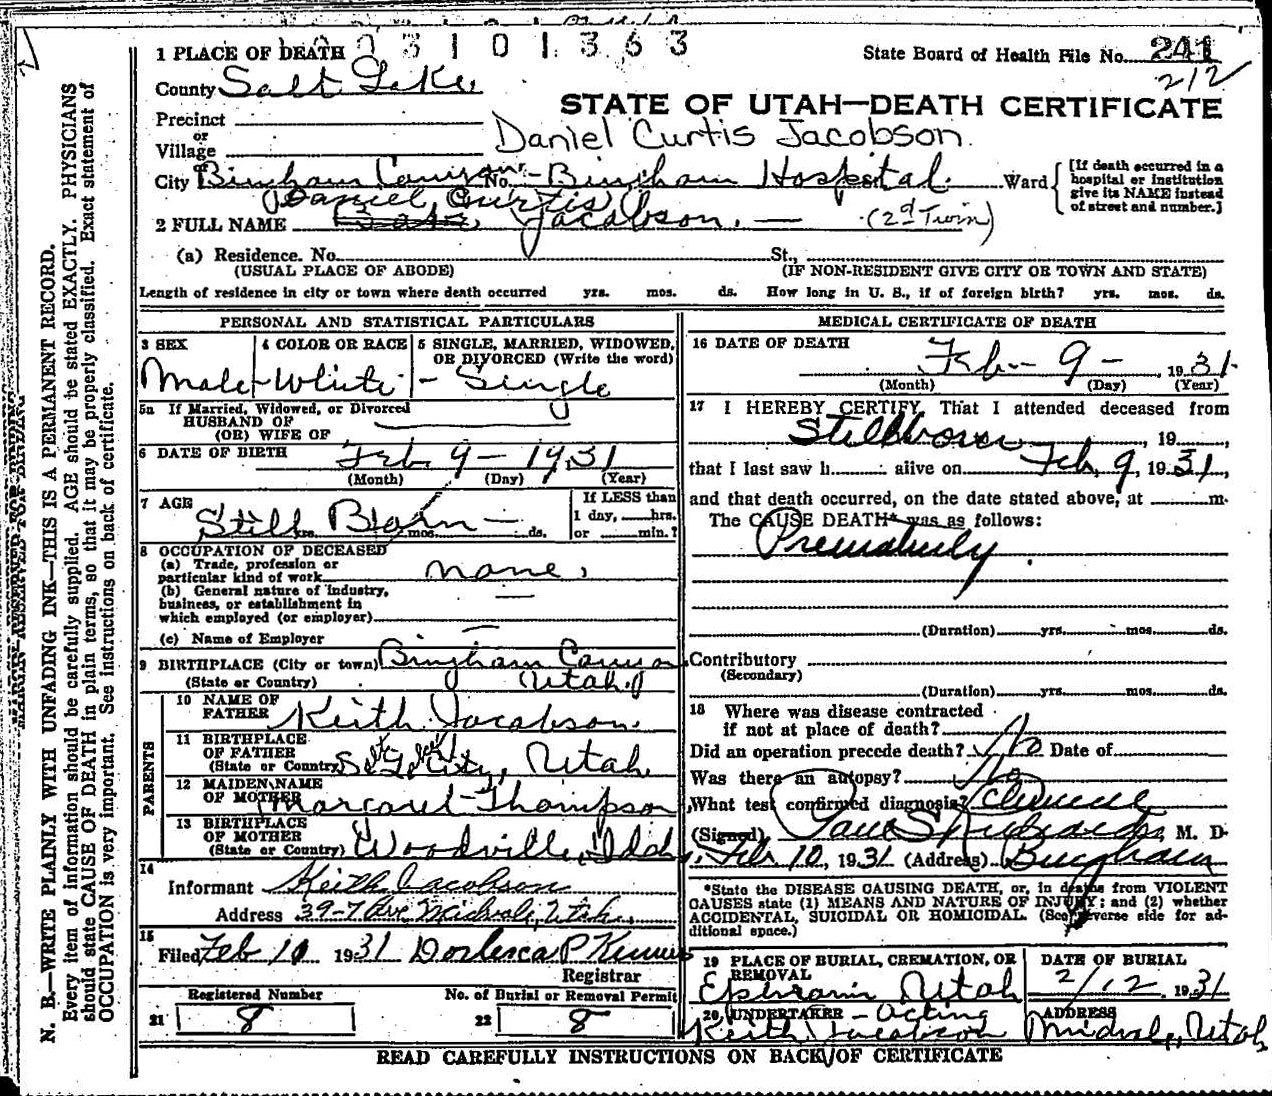 1 PLACE OF DEATH
3 1 0 1 3 6 3
State Board of Health File No. 241
212
County Salt Lake
STATE OF UTAH—DEATH CERTIFICATE
Precinct
or
Village
Daniel Curtis Jacobson.
City Bingham Canyon No. Bingham Hospital. Ward
[If death occurred in a hospital or institution give its NAME instead of street and number.]
Daniel Curtis
2 FULL NAME Jacobson. — (2d Twin)
(a) Residence. No. St.,
(USUAL PLACE OF ABODE) (IF NON-RESIDENT GIVE CITY OR TOWN AND STATE)
Length of residence in city or town where death occurred yrs. mos. ds. How long in U. S., if of foreign birth? yrs. mos. ds.
PERSONAL AND STATISTICAL PARTICULARS
3 SEX 4 COLOR OR RACE 5 SINGLE, MARRIED, WIDOWED, OR DIVORCED (Write the word)
Male - White - Single
5a If Married, Widowed, or Divorced
HUSBAND OF
(OR) WIFE OF
6 DATE OF BIRTH Feb 9 - 1931
(Month) (Day) (Year)
7 AGE Still Born — yrs. mos. ds.
If LESS than
1 day, hrs.
or min.?
8 OCCUPATION OF DECEASED
(a) Trade, profession or
particular kind of work none.
(b) General nature of industry,
business, or establishment in
which employed (or employer)
(c) Name of Employer
9 BIRTHPLACE (City or town) Bingham Canyon
(State or Country) Utah.
PARENTS
10 NAME OF FATHER Keith Jacobson.
11 BIRTHPLACE OF FATHER (State or Country) Salt Lake City, Utah
12 MAIDEN NAME OF MOTHER Margaret Thompson
13 BIRTHPLACE OF MOTHER (State or Country) Woodville, Idah
14
Informant Keith Jacobson
Address 39-7 Ave Midvale, Utah.
15
Filed Feb 10 1931
Registrar
21 Registered Number 8
22 No. of Burial or Removal Permit 8
MEDICAL CERTIFICATE OF DEATH
16 DATE OF DEATH Feb - 9 - 1931.
(Month) (Day) (Year)
17 I HEREBY CERTIFY, That I attended deceased from
Stillborn, 19
that I last saw h alive on Feb. 9, 1931,
and that death occurred, on the date stated above, at m.
The CAUSE DEATH* was as follows:
Prematurity.
(Duration) yrs. mos. ds.
Contributory
(Secondary)
(Duration) yrs. mos. ds.
18 Where was disease contracted
if not at place of death?
Did an operation precede death? No Date of
Was there an autopsy? No
What test confirmed diagnosis? Clinical
(Signed) Paul S Richards, M. D.
Feb 10, 1931 (Address) Bingham
*State the DISEASE CAUSING DEATH, or, in deaths from VIOLENT
CAUSES state (1) MEANS AND NATURE OF INJURY; and (2) whether
ACCIDENTAL, SUICIDAL OR HOMICIDAL. (See reverse side for ad-
ditional space.)
19 PLACE OF BURIAL, CREMATION, OR REMOVAL
DATE OF BURIAL
Ephraim Utah 2/12 1931
20 UNDERTAKER - Acting ADDRESS
Keith Jacobson Midvale, Utah
READ CAREFULLY INSTRUCTIONS ON BACK OF CERTIFICATE
N. B.—WRITE PLAINLY WITH UNFADING INK—THIS IS A PERMANENT RECORD.
Every item of information should be carefully supplied. AGE should be stated EXACTLY. PHYSICIANS
should state CAUSE OF DEATH in plain terms, so that it may be properly classified. Exact statement of
OCCUPATION is very important. See instructions on back of certificate.